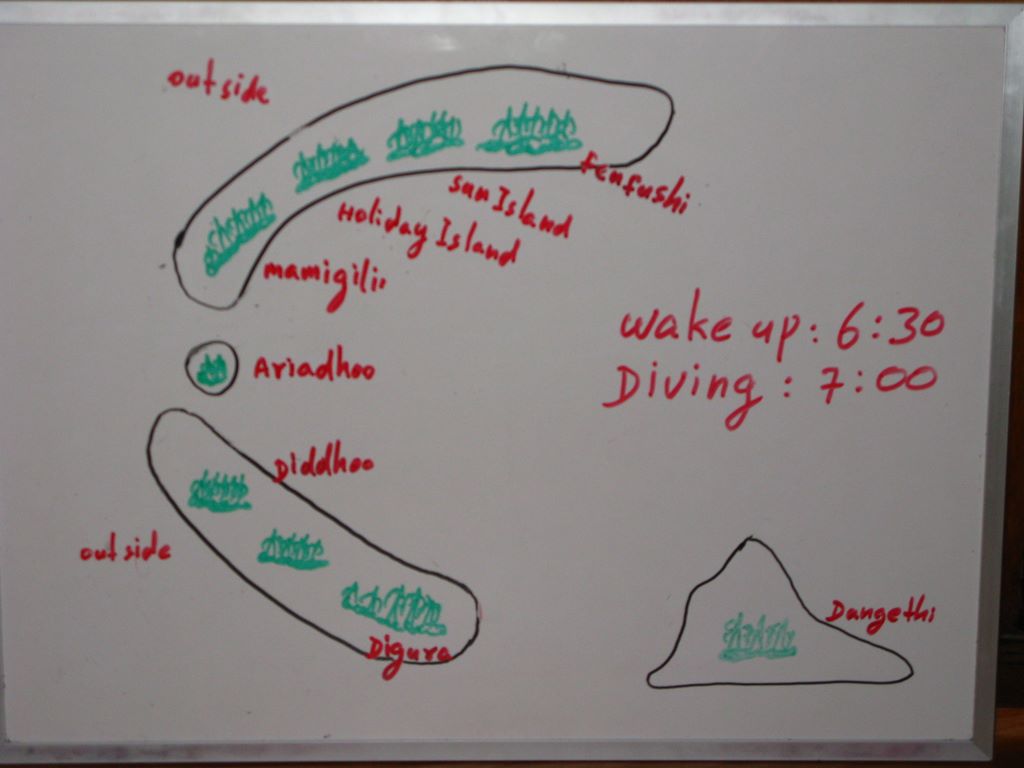 outside
fenfushi
sun Island
Holiday Island
mamigili
wake up: 6:30
Diving: 7:00
Ariadhoo
Diddhoo
outside
Dangethi
Digura